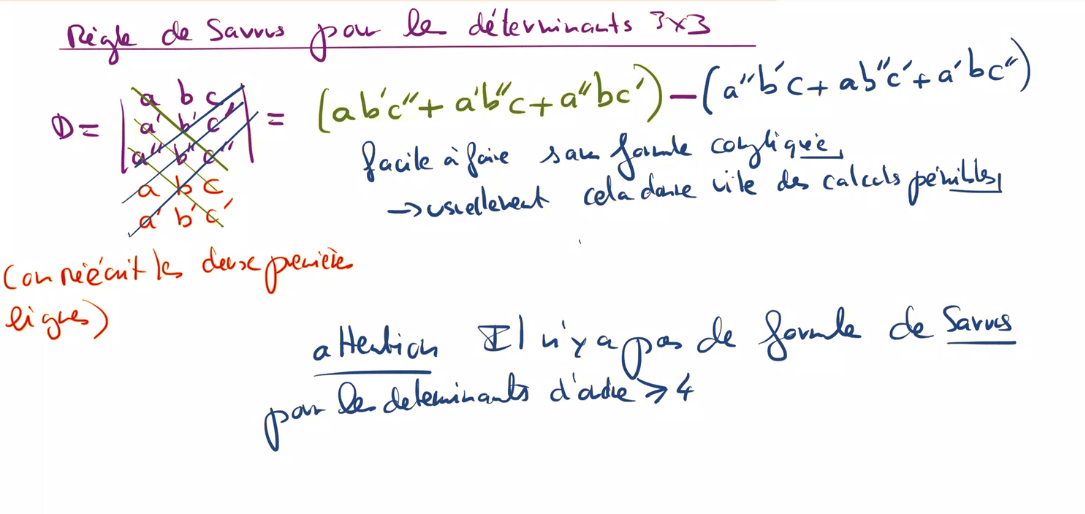 Règle de Sarrus pour les déterminants 3x3
D = | a b c | = (ab'c" + a'b"c + a"bc') - (a"b'c + ab"c' + a'bc")
a' b' c'
a" b" c"
a b c
a' b' c'
facile à faire sans formule compliquée,
→ usuellement cela donne vite des calculs pénibles
(on réécrit les deux premières
lignes)
attention Il n'y a pas de formule de Sarrus
pour les determinants d'ordre ⩾ 4